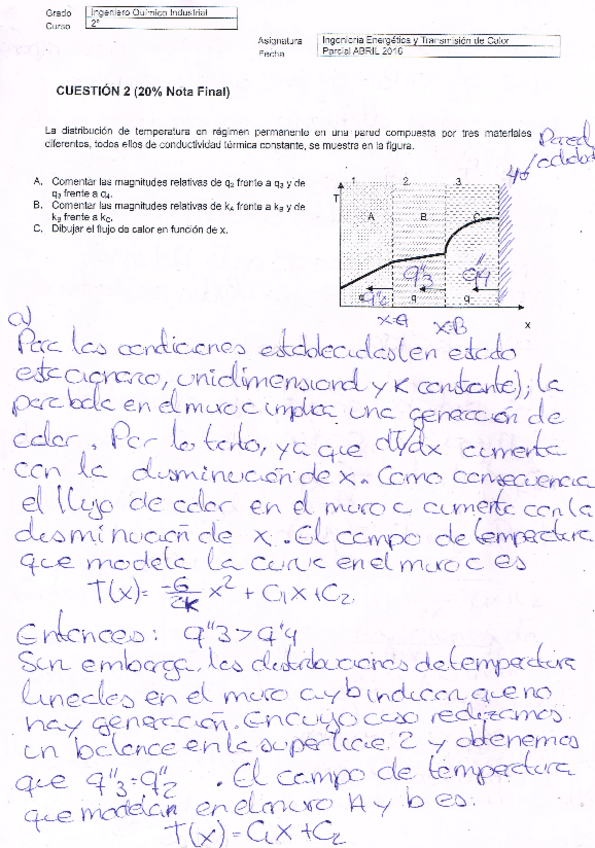 Grado Ingeniero Químico Industrial
Curso 2º
Asignatura Ingeniería Energética y Transmisión de Calor
Fecha Parcial ABRIL 2016
CUESTIÓN 2 (20% Nota Final)
La distribución de temperatura en régimen permanente en una pared compuesta por tres materiales
diferentes, todos ellos de conductividad térmica constante, se muestra en la figura.
Pared
A. Comentar las magnitudes relativas de q₂ frente a q₃ y de
q₃ frente a q₄.
B. Comentar las magnitudes relativas de kA frente a kB y de
kB frente a kC.
C. Dibujar el flujo de calor en función de x.
1 2 3
T
A B C
q"2 q"3 q"4
q q q
x=A x=B
x
a)
Para las condiciones establecidas (en estado
estacionario, unidimensional y K constante); la
parabola en el muro c implica una generación de
calor. Por lo tanto, ya que dT/dx aumenta
con la disminución de x. Como consecuencia
el flujo de calor en el muro c aumenta con la
disminución de x. El campo de temperatura
que modela la curva en el muro c es
T(x) = -G/2K x² + C₁x + C₂
Entonces: q"3 > q"4
Sin embargo, las distribuciones de temperatura
lineales en el muro a y b indican que no
hay generación. En cuyo caso realizamos
un balance en la superficie 2 y obtenemos
que q"3 = q"2 . El campo de temperatura
que modelan en el muro A y b es:
T(x) = C₁x + C₂